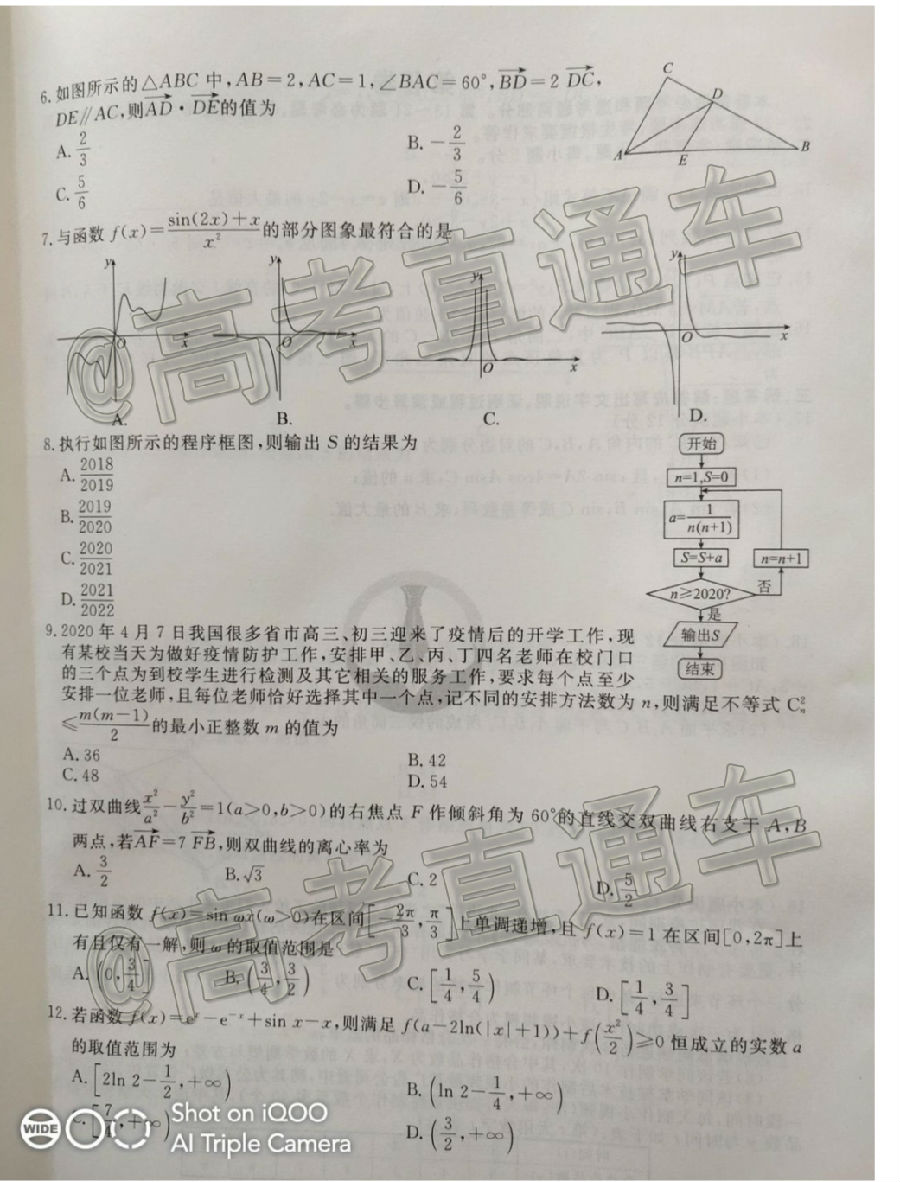 6.如图所示的△ABC中,AB=2,AC=1,∠BAC=60°,BD=2 DC,
DE∥AC,则AD·DE的值为
C
D
A
E
B
A. 2/3
B. -2/3
C. 5/6
D. -5/6
7.与函数 f(x)=(sin(2x)+x)/x² 的部分图象最符合的是
y
O
x
y
O
x
y
O
x
y
O
x
A.
B.
C.
D.
8.执行如图所示的程序框图,则输出 S 的结果为
A. 2018/2019
B. 2019/2020
C. 2020/2021
D. 2021/2022
开始
n=1,S=0
a=1/(n(n+1))
S=S+a
n=n+1
n≥2020?
否
是
输出S
结束
9.2020年4月7日我国很多省市高三、初三迎来了疫情后的开学工作,现
有某校当天为做好疫情防护工作,安排甲、乙、丙、丁四名老师在校门口
的三个点为到校学生进行检测及其它相关的服务工作,要求每个点至少
安排一位老师,且每位老师恰好选择其中一个点,记不同的安排方法数为 n,则满足不等式 C²ₙ
≤m(m-1)/2 的最小正整数 m 的值为
A. 36
B. 42
C. 48
D. 54
10.过双曲线 x²/a²-y²/b²=1(a>0,b>0)的右焦点 F 作倾斜角为 60°的直线交双曲线右支于 A,B
两点,若AF=7 FB,则双曲线的离心率为
A. 3/2
B. √3
C. 2
D. 5/2
11.已知函数 f(x)=sin ωx(ω>0)在区间[-2π/3,π/3]上单调递增,且 f(x)=1 在区间[0,2π]上
有且仅有一解,则 ω 的取值范围是
A. (0,3/4]
B. (3/4,3/2)
C. [1/4,5/4)
D. [1/4,3/4]
12.若函数 f(x)=eˣ-e⁻ˣ+sin x-x,则满足 f(a-2ln(|x|+1))+f(x²/2)≥0 恒成立的实数 a
的取值范围为
A. [2ln 2-1/2,+∞)
B. (ln 2-1/4,+∞)
D. (3/2,+∞)
@高考直通车
@高考直通车
WIDE
Shot on iQOO
AI Triple Camera